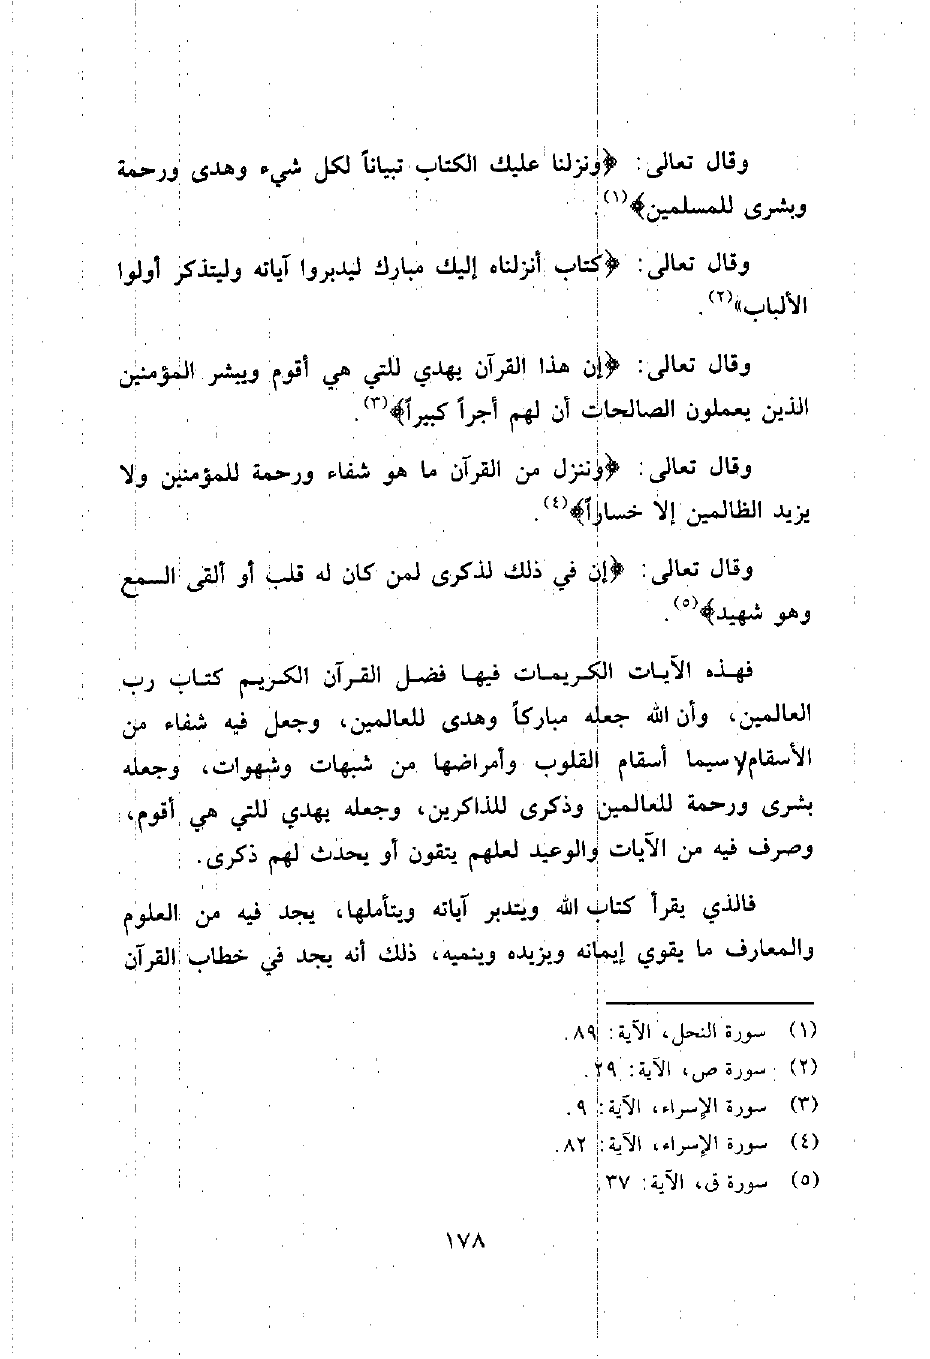 وقال تعالى: ﴿ونزلنا عليك الكتاب تبياناً لكل شيء وهدى ورحمة
وبشرى للمسلمين﴾(١).
وقال تعالى: ﴿كتاب أنزلناه إليك مبارك ليدبروا آياته وليتذكر أولوا
الألباب»(٢).
وقال تعالى: ﴿إن هذا القرآن يهدي للتي هي أقوم ويبشر المؤمنين
الذين يعملون الصالحات أن لهم أجراً كبيراً﴾(٣).
وقال تعالى: ﴿وننزل من القرآن ما هو شفاء ورحمة للمؤمنين ولا
يزيد الظالمين إلا خساراً﴾(٤).
وقال تعالى: ﴿إن في ذلك لذكرى لمن كان له قلب أو ألقى السمع
وهو شهيد﴾(٥).
فهذه الآيات الكريمات فيها فضل القرآن الكريم كتاب رب
العالمين، وأن الله جعله مباركاً وهدى للعالمين، وجعل فيه شفاء من
الأسقام لا سيما أسقام القلوب وأمراضها من شبهات وشهوات، وجعله
بشرى ورحمة للعالمين وذكرى للذاكرين، وجعله يهدي للتي هي أقوم،
وصرف فيه من الآيات والوعيد لعلهم يتقون أو يحدث لهم ذكرى.
فالذي يقرأ كتاب الله ويتدبر آياته ويتأملها، يجد فيه من العلوم
والمعارف ما يقوي إيمانه ويزيده وينميه، ذلك أنه يجد في خطاب القرآن
(١) سورة النحل، الآية: ٨٩.
(٢) سورة ص، الآية: ٢٩.
(٣) سورة الإسراء، الآية: ٩.
(٤) سورة الإسراء، الآية: ٨٢.
(٥) سورة ق، الآية: ٣٧.
١٧٨